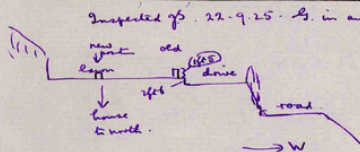 Inspected gs. 22.9.25. G. in
new
post
old
lawn
2ft6
drive
house
to north.
road.
→ W